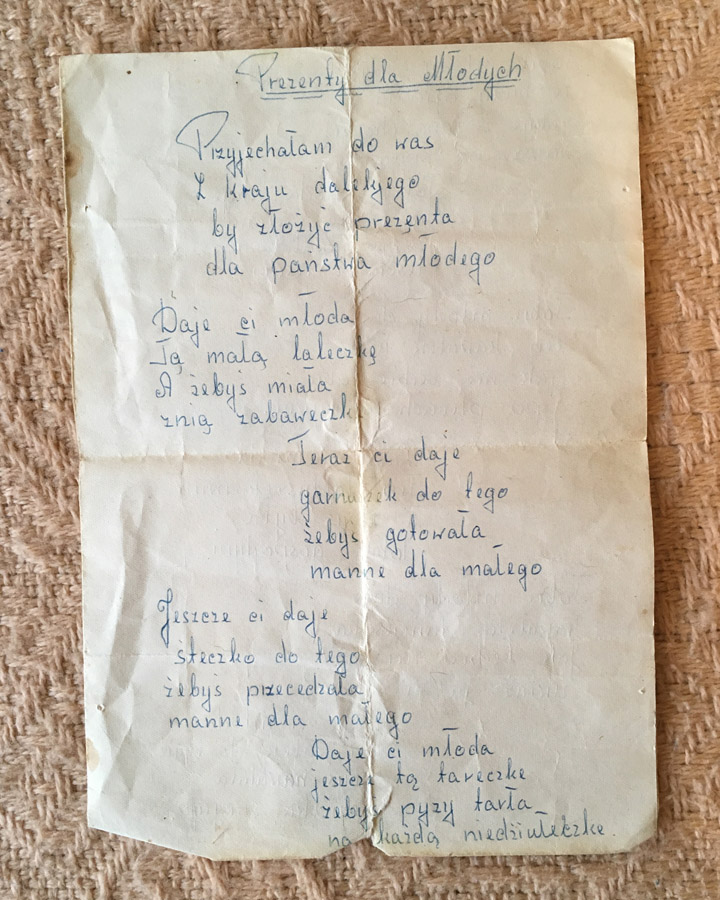 Prezenty dla Młodych
Przyjechałam do was
Z kraju dalekjego
by złożyć prezęnta
dla państwa młodego
Daje ci młoda
Tą małą laleczkę
A żebyś miała
znią zabaweczk
Teraz ci daje
garnuszek do tego
żebyś gotowała
manne dla małego
Jeszcze ci daje
śteczko do tego
żebyś przecedzała
manne dla małego
Daje ci młoda
jeszcze tą tareczke
żebyś pyzy tarła
na każdą niedziułeczke.